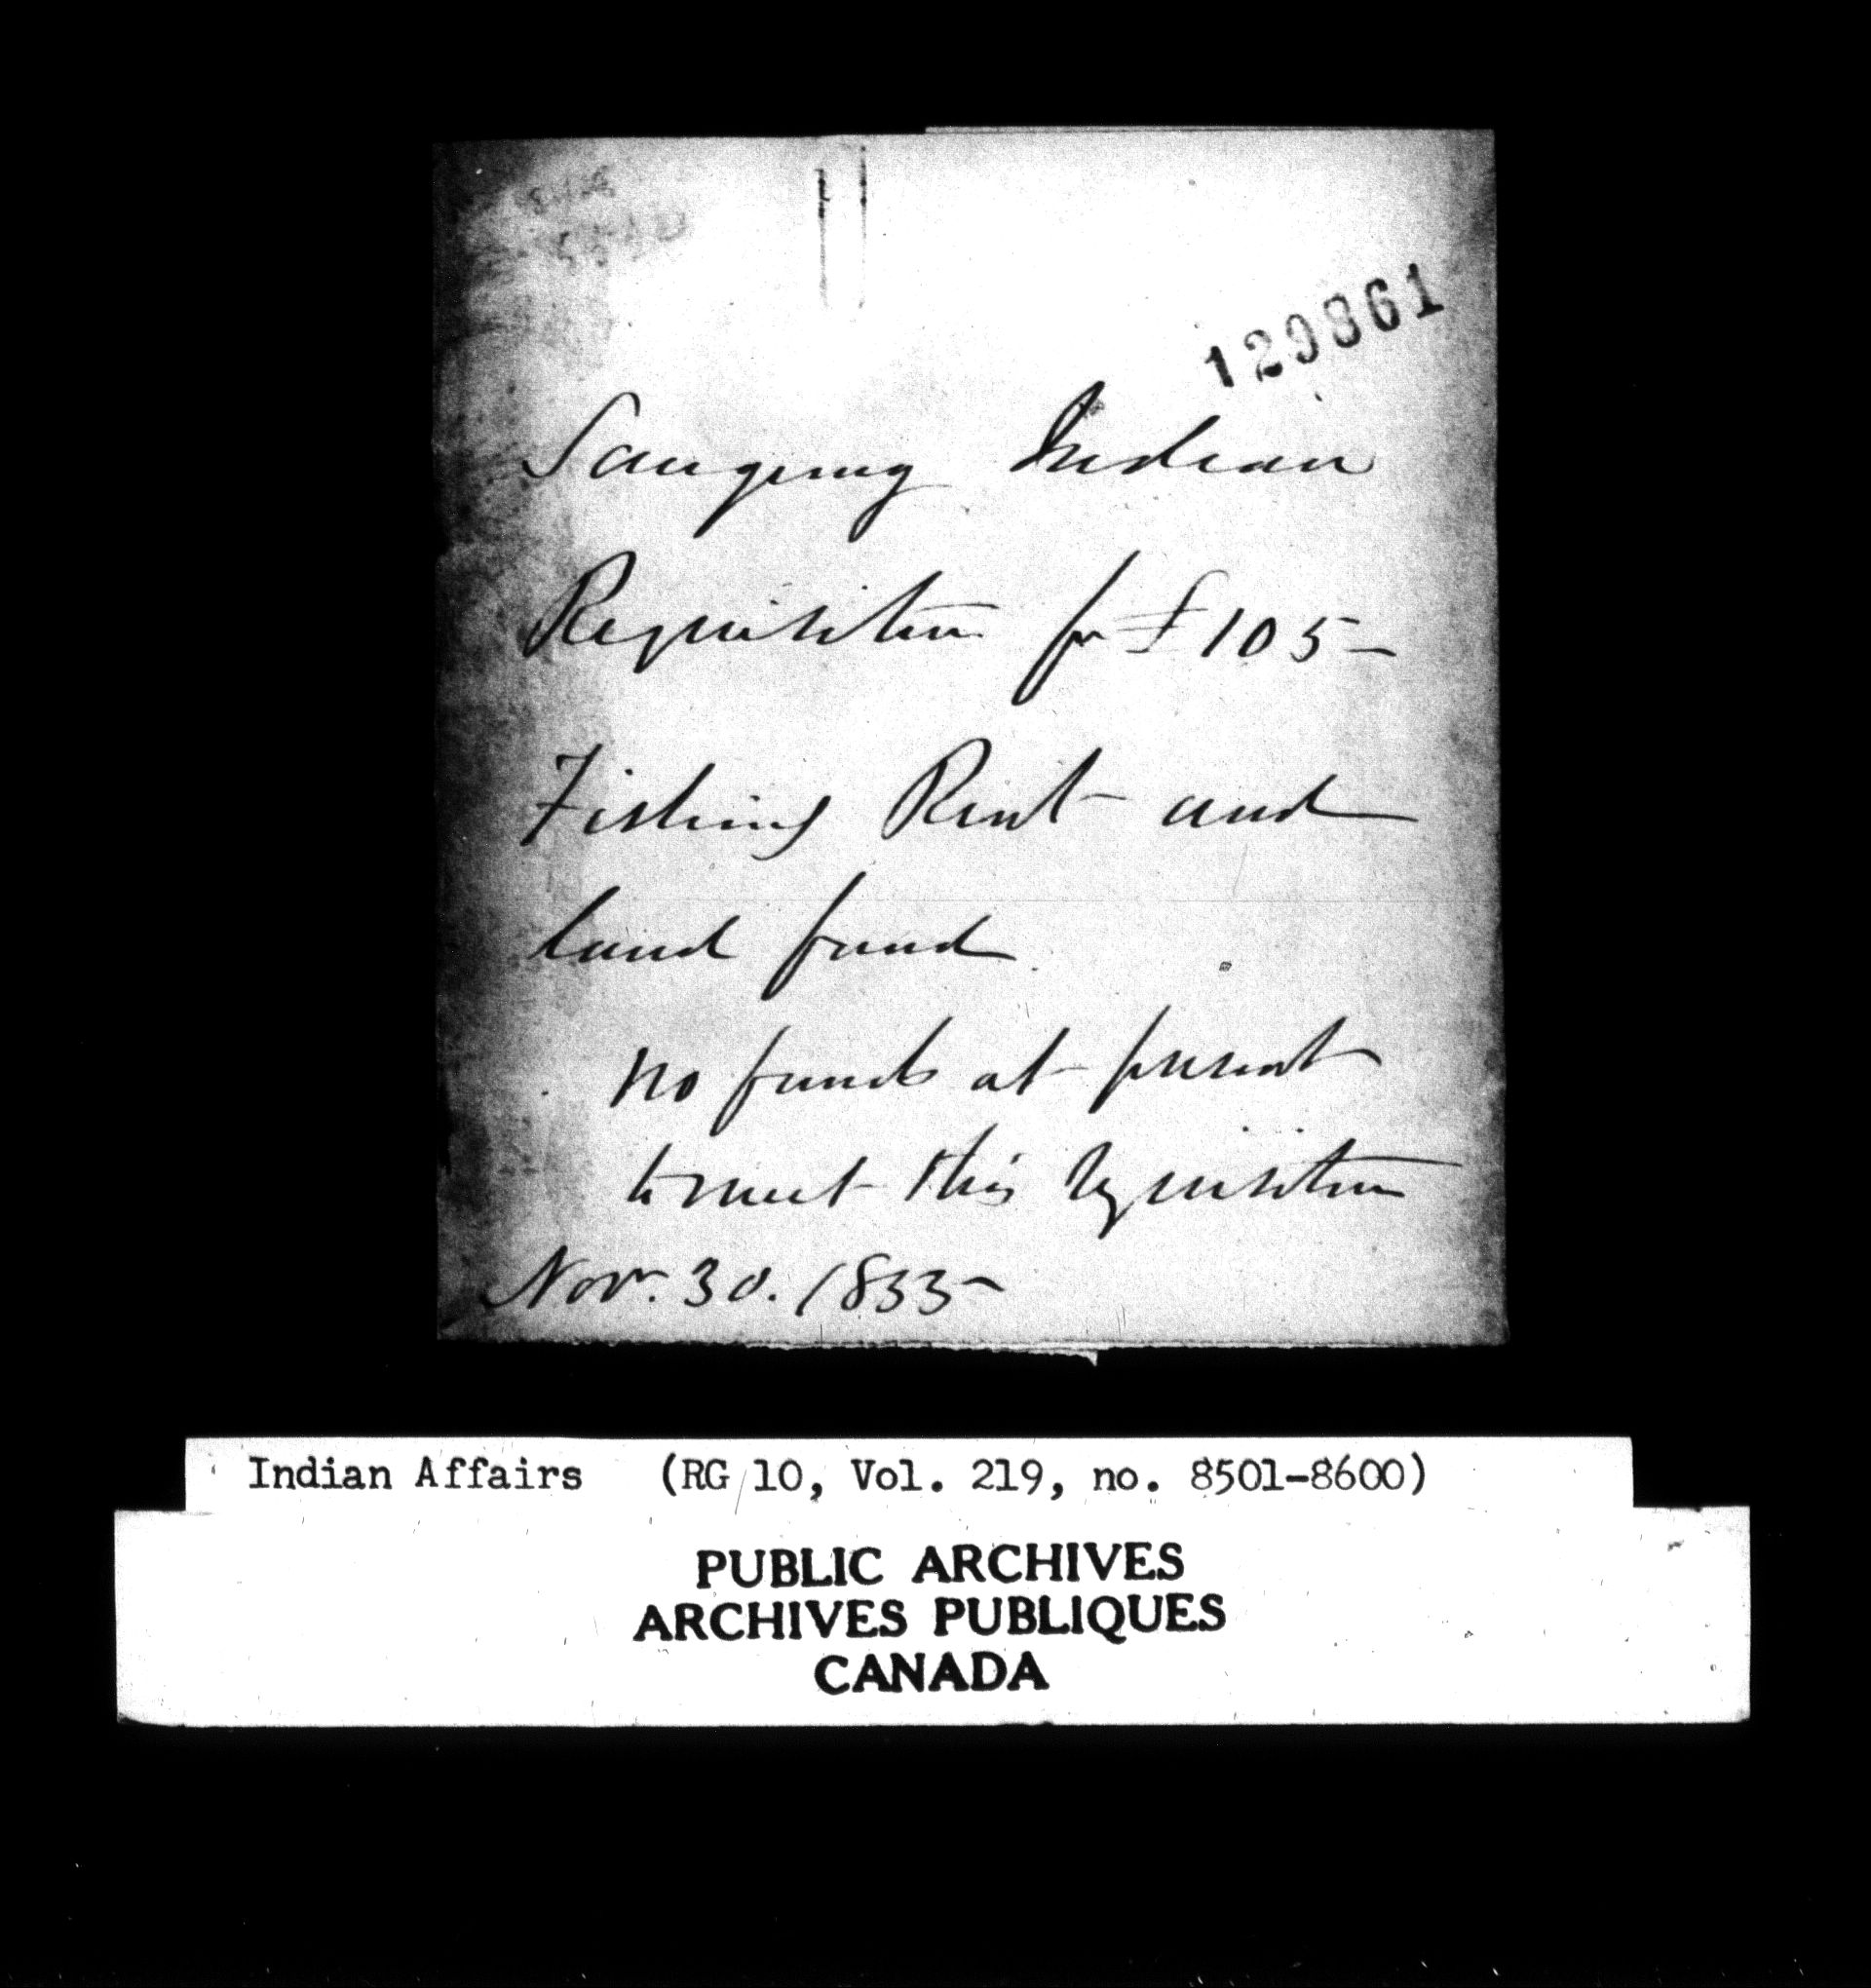 129861
Saugeeng Indian
Requisition for £105-
Fishing Rent and
land fund.
No funds at present
to meet this requisition
Nov. 30. 1855
Indian Affairs (RG 10, Vol. 219, no. 8501-8600)
PUBLIC ARCHIVES
ARCHIVES PUBLIQUES
CANADA